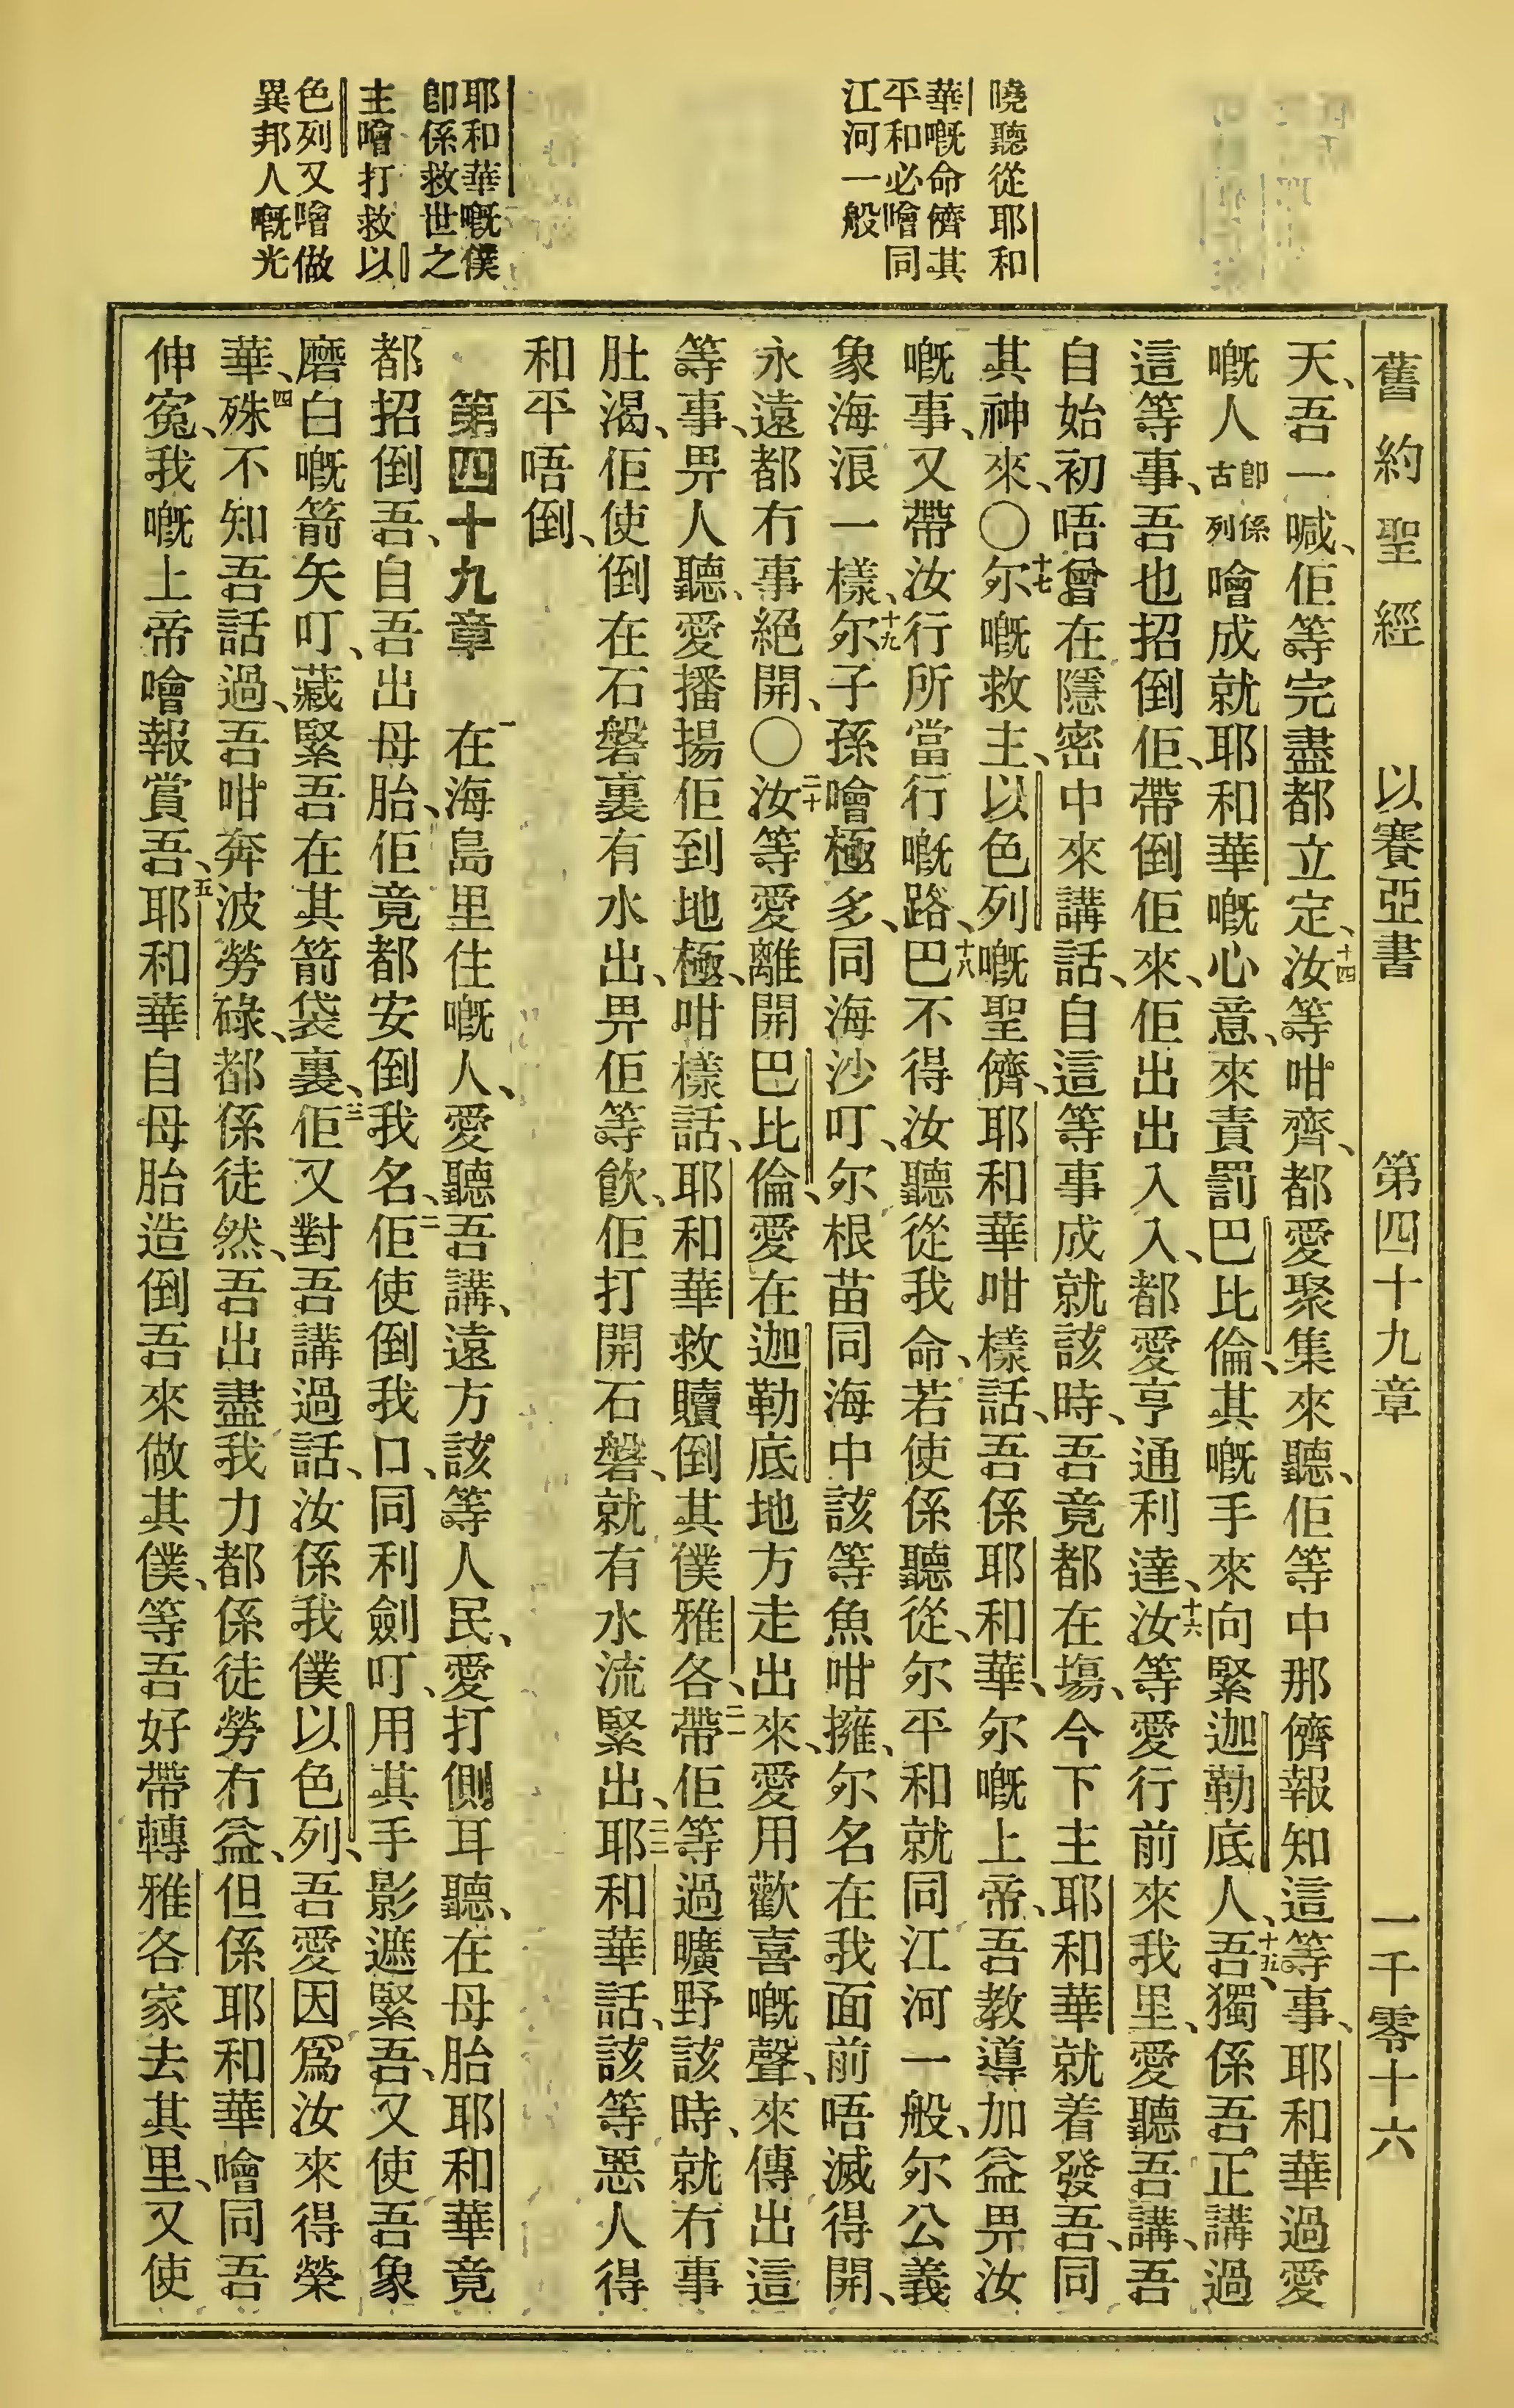 舊約聖經 以賽亞書 第四十九章 一千零十六
天、吾一喊、佢等完盡都立定、十四汝等咁齊、都愛聚集來聽、佢等中那儕報知這等事、耶和華過愛
嘅人卽係古列噲成就耶和華嘅心意、來責罰巴比倫、其嘅手來向緊迦勒底人、十五吾、獨係吾、正講過
這等事、吾也招倒佢、帶倒佢來、佢出出入入、都愛亨通利達、十六汝等愛行前來我里、愛聽吾講、吾
自始初唔曾在隱密中來講話、自這等事成就該時、吾竟都在塲、今下主耶和華就着發吾、同
其神來、〇十七尔嘅救主、以色列嘅聖儕、耶和華咁樣話、吾係耶和華、尔嘅上帝、吾教導加益畀汝
嘅事、又帶汝行所當行嘅路、十八巴不得汝聽從我命、若使係聽從、尔平和就同江河一般、尔公義
象海浪一樣、十九尔子孫噲極多、同海沙叮、尔根苗同海中該等魚咁擁、尔名在我面前唔滅得開、
永遠都冇事絕開、〇二十汝等愛離開巴比倫、愛在迦勒底地方走出來、愛用歡喜嘅聲、來傳出這
等事、畀人聽、愛播揚佢到地極、咁樣話、耶和華救贖倒其僕雅各、二一帶佢等過曠野該時、就冇事
肚渴、佢使倒在石磐裏有水出、畀佢等飮、佢打開石磐、就有水流緊出、二二耶和華話、該等惡人得
和平唔倒、
第四十九章 一在海島里住嘅人、愛聽吾講、遠方該等人民、愛打側耳聽、在母胎耶和華竟
都招倒吾、自吾出母胎、佢竟都安倒我名、二佢使倒我口、同利劍叮、用其手影遮緊吾、又使吾象
磨白嘅箭矢叮、藏緊吾在其箭袋裏、三佢又對吾講過話、汝係我僕以色列、吾愛因爲汝來得榮
華、四殊不知吾話過、吾咁奔波勞碌、都係徒然、吾出盡我力都係徒勞冇益、但係耶和華噲同吾
伸寃、我嘅上帝噲報賞吾、五耶和華自母胎造倒吾來做其僕、等吾好帶轉雅各家去其里、又使
曉聽從耶和
華嘅命儕其
平和必噲同
江河一般
耶和華嘅僕
卽係救世之
主噲打救以
色列又噲做
異邦人嘅光